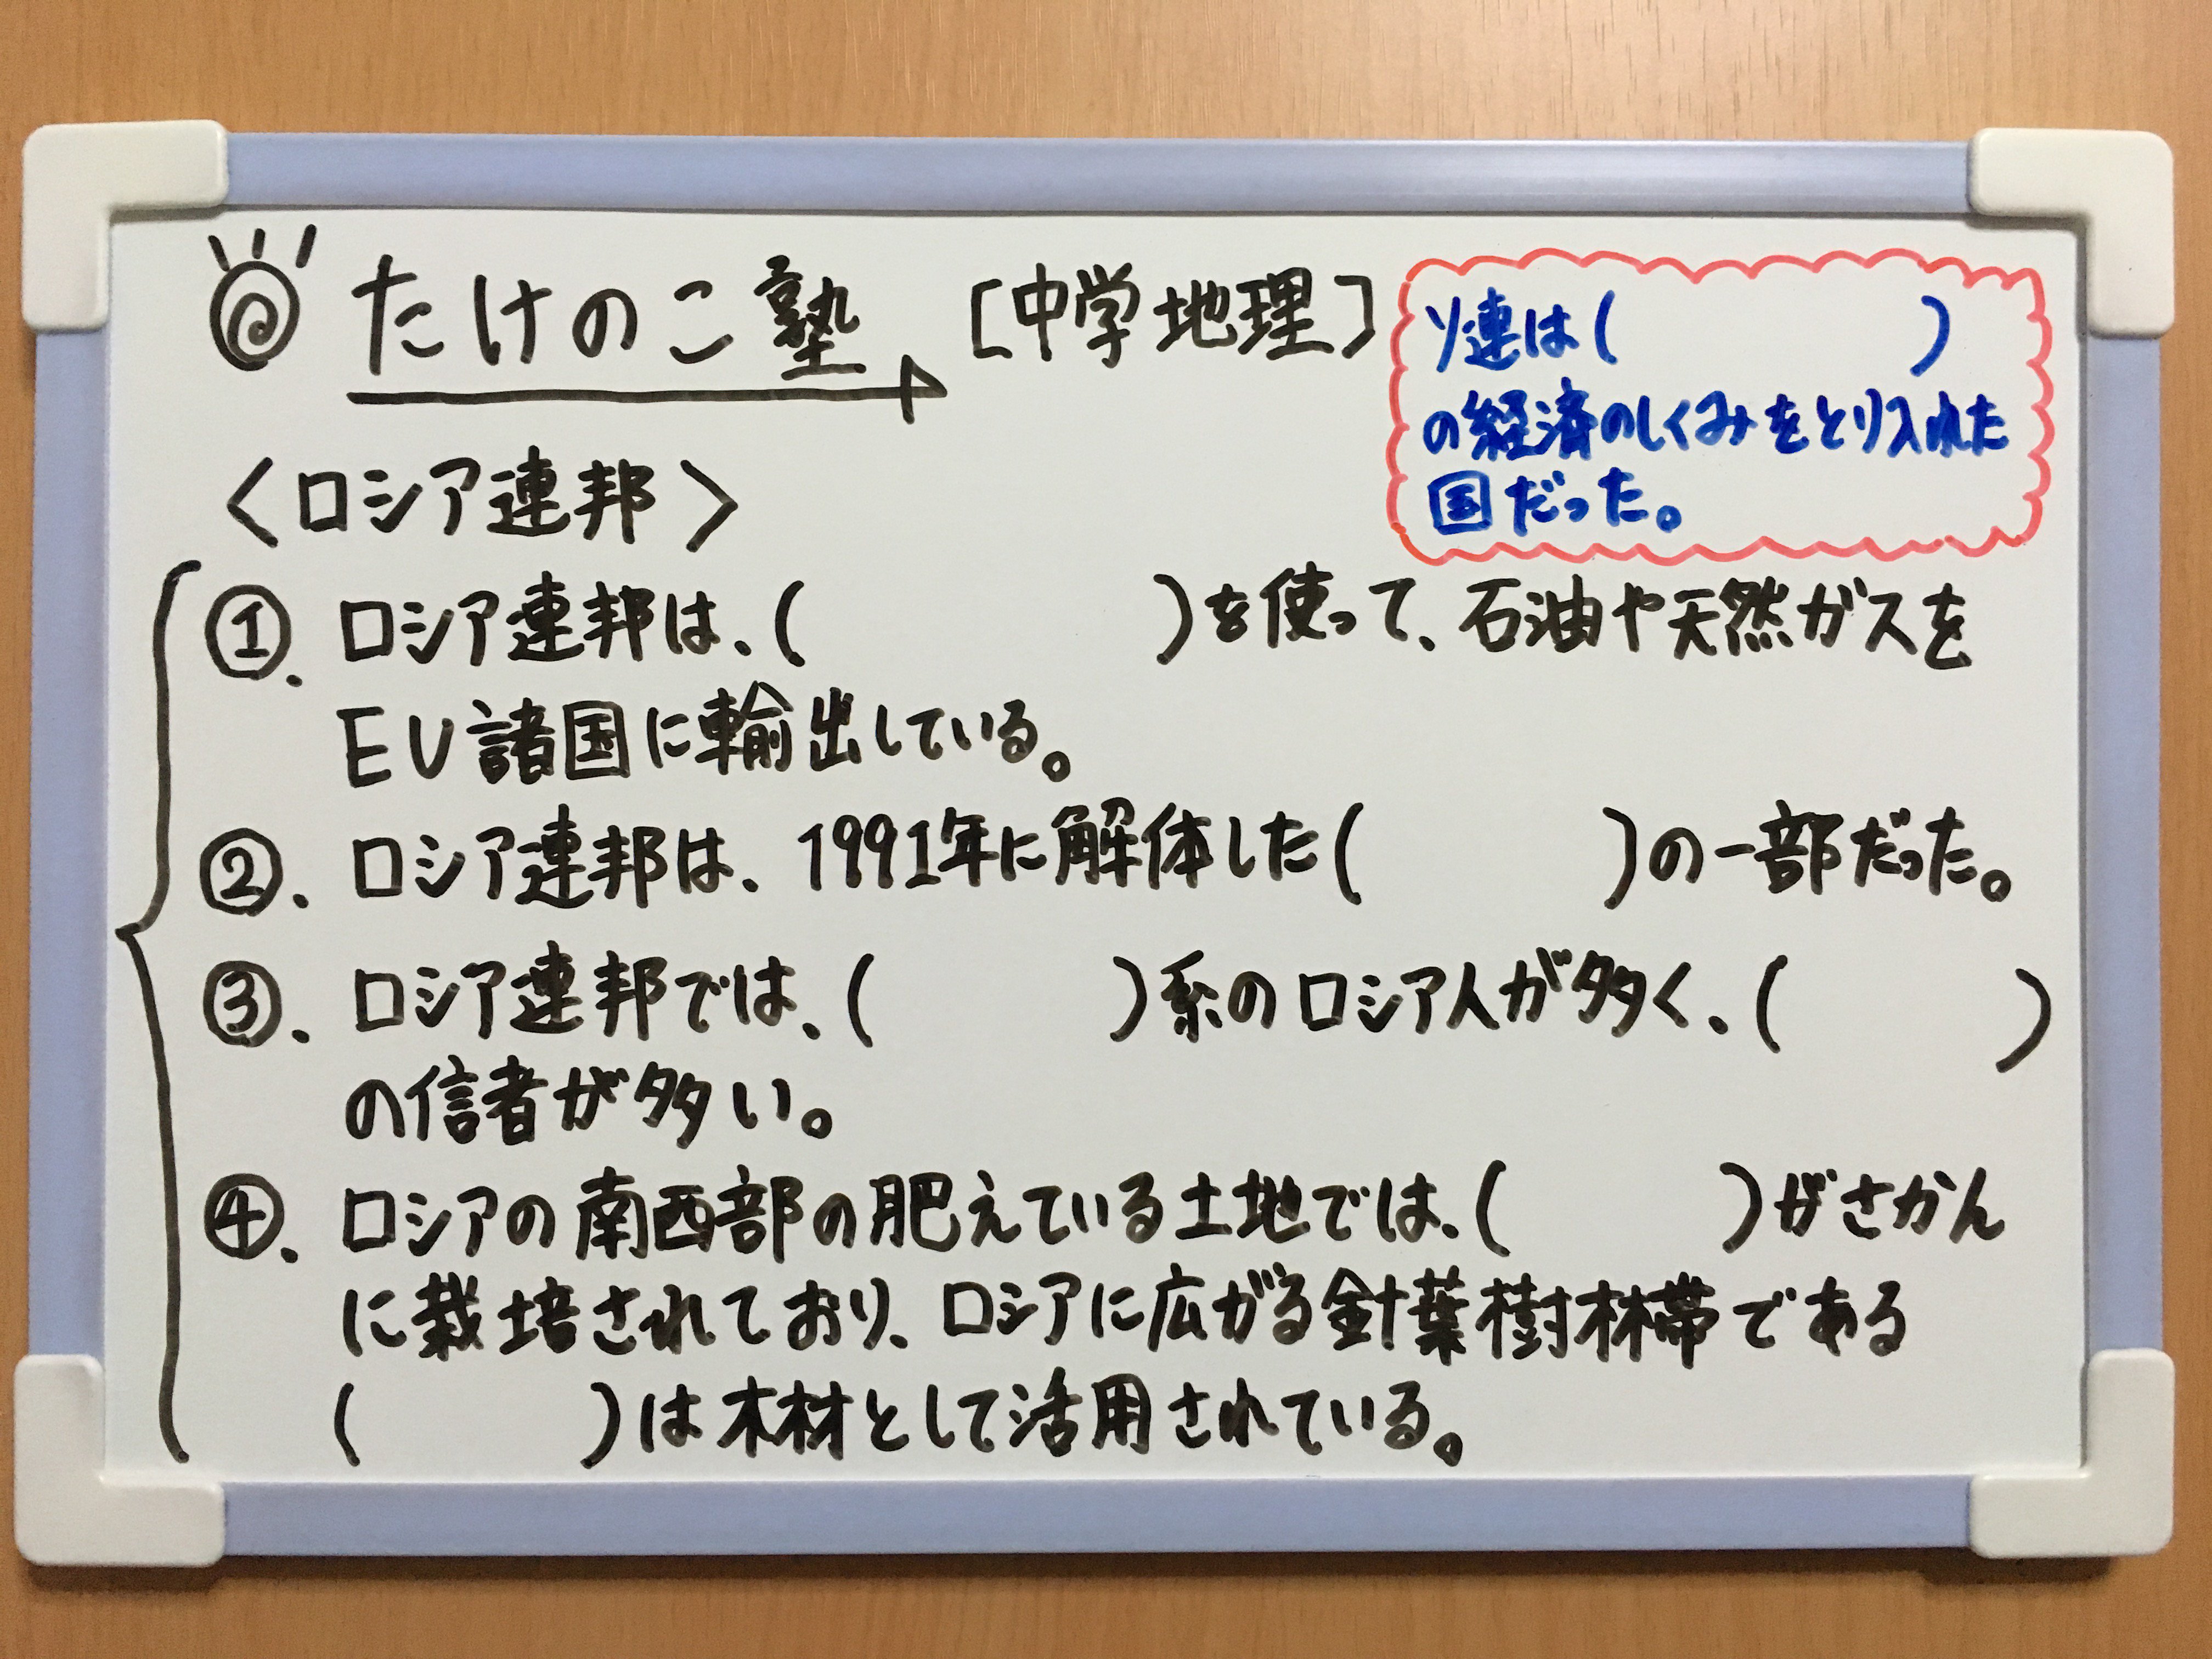 たけのこ塾 [中学地理]
ソ連は(　　　　)
の経済のしくみをとり入れた
国だった。
<ロシア連邦>
①. ロシア連邦は、(　　　　)を使って、石油や天然ガスを
EU諸国に輸出している。
②. ロシア連邦は、1991年に解体した(　　　　)の一部だった。
③. ロシア連邦では、(　　　　)系のロシア人が多く、(　　　　)
の信者が多い。
④. ロシアの南西部の肥えている土地では、(　　　　)がさかん
に栽培されており、ロシアに広がる針葉樹林帯である
(　　　　)は木材として活用されている。